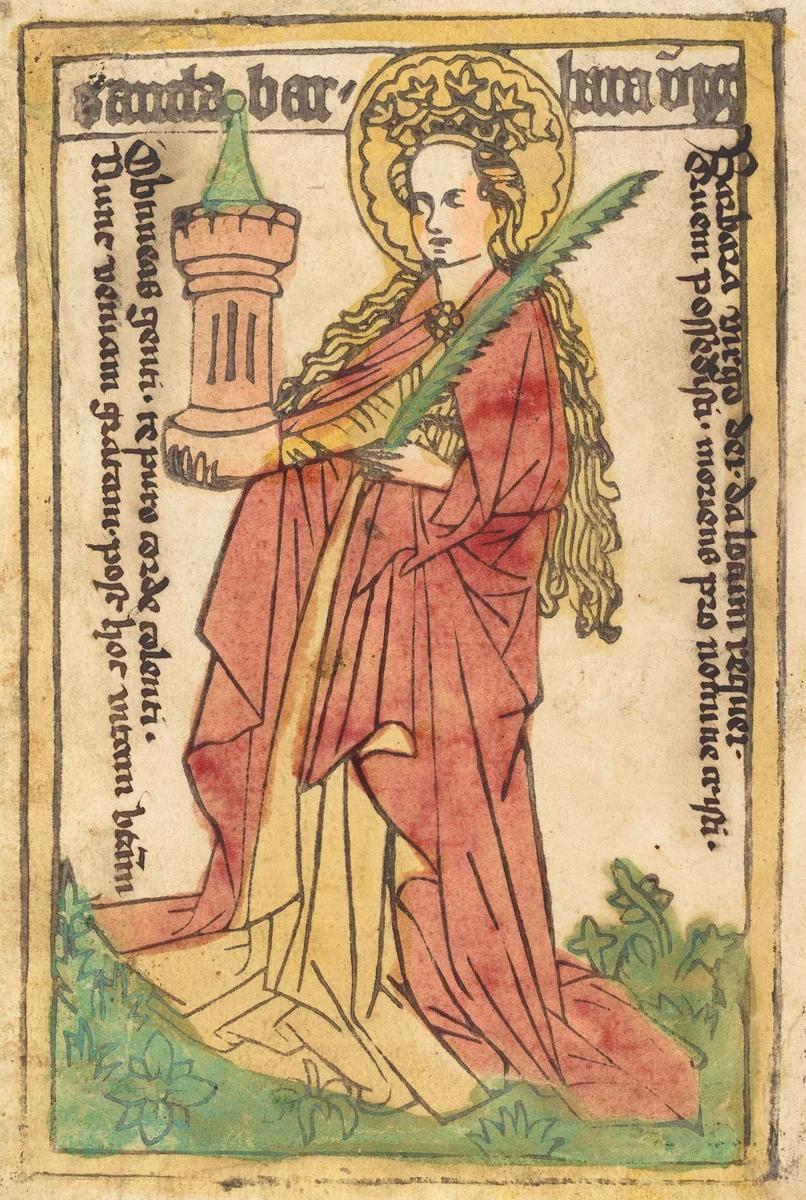 sancta bar-
bara v̄gō
Barbara virgo dei· da requiei·
Quem possedisti· moriens pro nomine cristi·
Obtineas genti· te puro corde colenti·
Nunc veniam gratam· post hoc vitam bt̄am